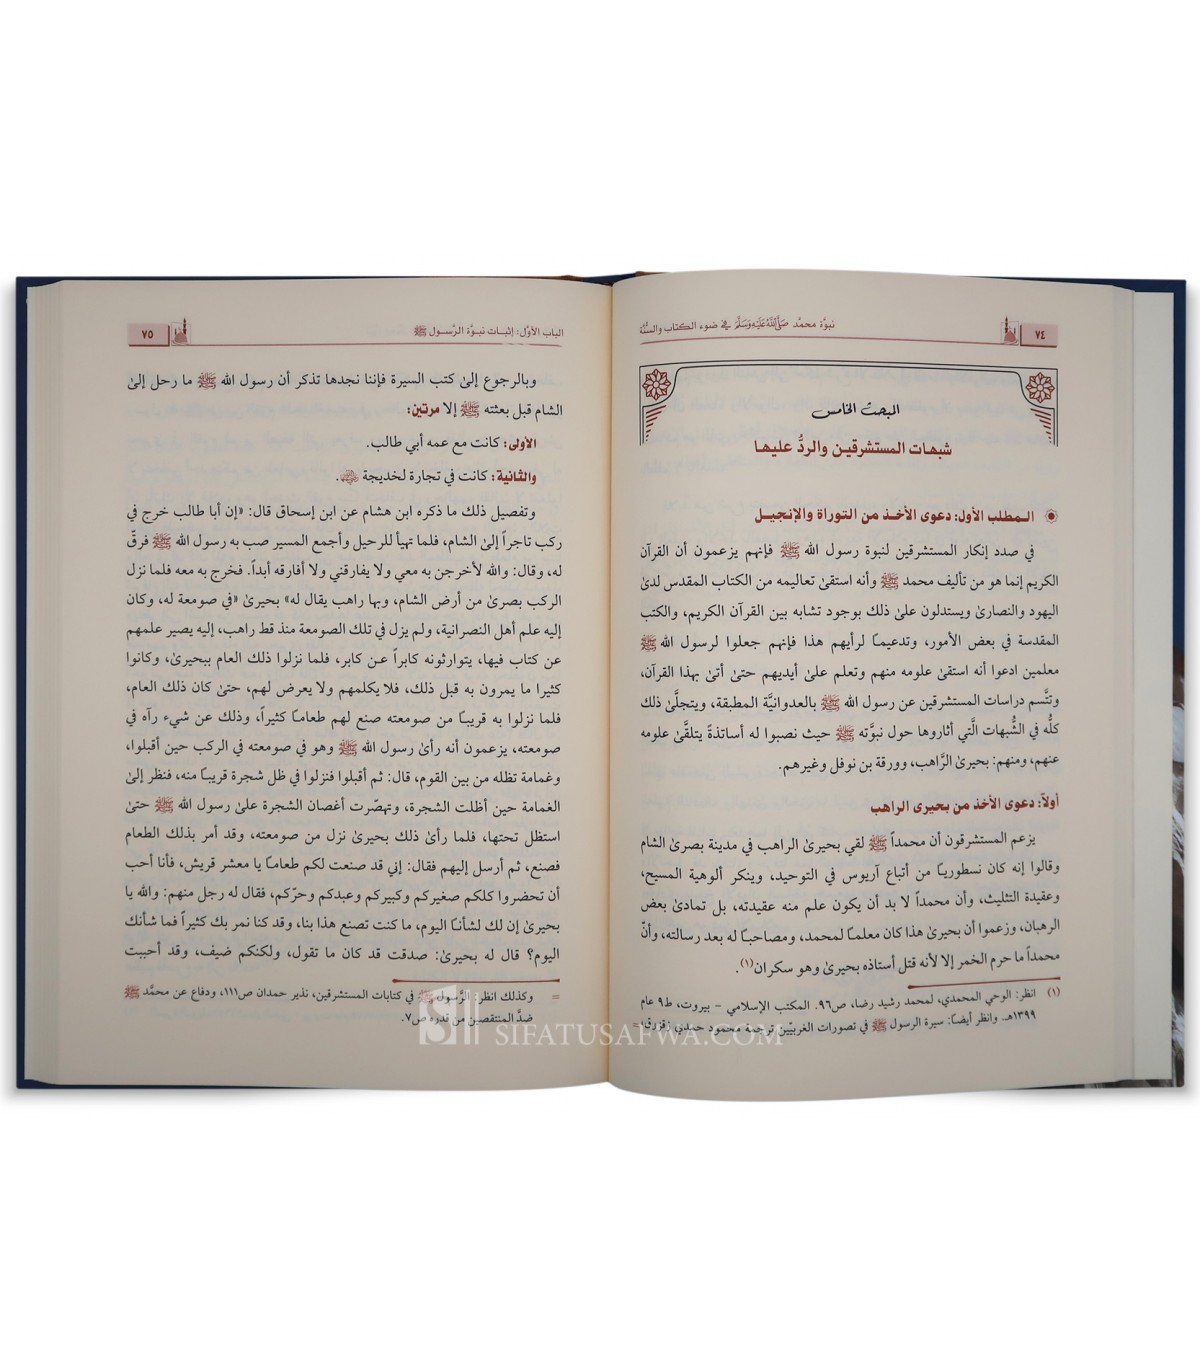 ٧٤
نبوّة محمّد صَلَّى اللهُ عَلَيْهِ وَسَلَّمَ في ضوء الكتاب والسنّة
المبحث الخامس
شبهات المستشرقين والردُّ عليها
المطلب الأول: دعوى الأخذ من التوراة والإنجيل
في صدد إنكار المستشرقين لنبوة رسول الله ﷺ فإنهم يزعمون أن القرآن
الكريم إنما هو من تأليف محمد ﷺ وأنه استقىٰ تعاليمه من الكتاب المقدس لدىٰ
اليهود والنصارىٰ ويستدلون علىٰ ذلك بوجود تشابه بين القرآن الكريم، والكتب
المقدسة في بعض الأمور، وتدعيمًا لرأيهم هذا فإنهم جعلوا لرسول الله ﷺ
معلمين ادعوا أنه استقىٰ علومه منهم وتعلم علىٰ أيديهم حتىٰ أتىٰ بهذا القرآن،
وتتَّسم دراسات المستشرقين عن رسول الله ﷺ بالعدوانيَّة المطبقة، ويتجلَّىٰ ذلك
كلُّه في الشُّبهات الَّتي أثاروها حول نبوَّته ﷺ حيث نصبوا له أساتذةً يتلقَّىٰ علومه
عنهم، ومنهم: بحيرىٰ الرَّاهب، وورقة بن نوفل وغيرهم.
أولاً: دعوى الأخذ من بحيرى الراهب
يزعم المستشرقون أن محمداً ﷺ لقي بحيرىٰ الراهب في مدينة بصرىٰ الشام
وقالوا إنه كان نسطوريًا من أتباع آريوس في التوحيد، وينكر ألوهية المسيح،
وعقيدة التثليث، وأن محمداً لا بد أن يكون علم منه عقيدته، بل تمادىٰ بعض
الرهبان، وزعموا أن بحيرىٰ هذا كان معلمًا لمحمد، ومصاحبًا له بعد رسالته، وأنّ
محمداً ما حرم الخمر إلا لأنه قتل أستاذه بحيرىٰ وهو سكران(١).
(١) انظر: الوحي المحمدي، لمحمد رشيد رضا، ص٩٦. المكتب الإسلامي – بيروت، ط٩ عام
١٣٩٩هـ. وانظر أيضًا: سيرة الرسول ﷺ في تصورات الغربيّين ترجمة محمود حمدي زقزوق؛ =
الباب الأوّل: إثبات نبوّة الرّسول ﷺ
٧٥
وبالرجوع إلىٰ كتب السيرة فإننا نجدها تذكر أن رسول الله ﷺ ما رحل إلىٰ
الشام قبل بعثته ﷺ إلا مرتين:
الأولى: كانت مع عمه أبي طالب.
والثانية: كانت في تجارة لخديجة رضي الله عنها.
وتفصيل ذلك ما ذكره ابن هشام عن ابن إسحاق قال: «إن أبا طالب خرج في
ركب تاجراً إلىٰ الشام، فلما تهيأ للرحيل وأجمع المسير صب به رسول الله ﷺ فرقّ
له، وقال: والله لأخرجن به معي ولا يفارقني ولا أفارقه أبداً. فخرج به معه فلما نزل
الركب بصرىٰ من أرض الشام، وبها راهب يقال له» بحيرىٰ «في صومعة له، وكان
إليه علم أهل النصرانية، ولم يزل في تلك الصومعة منذ قط راهب، إليه يصير علمهم
عن كتاب فيها، يتوارثونه كابراً عن كابر، فلما نزلوا ذلك العام ببحيرىٰ، وكانوا
كثيرا ما يمرون به قبل ذلك، فلا يكلمهم ولا يعرض لهم، حتىٰ كان ذلك العام،
فلما نزلوا به قريبًا من صومعته صنع لهم طعامًا كثيراً، وذلك عن شيء رآه في
صومعته، يزعمون أنه رأىٰ رسول الله ﷺ وهو في صومعته في الركب حين أقبلوا،
وغمامة تظله من بين القوم، قال: ثم أقبلوا فنزلوا في ظل شجرة قريبًا منه، فنظر إلىٰ
الغمامة حين أظلت الشجرة، وتهصّرت أغصان الشجرة علىٰ رسول الله ﷺ حتىٰ
استظل تحتها، فلما رأىٰ ذلك بحيرىٰ نزل من صومعته، وقد أمر بذلك الطعام
فصنع، ثم أرسل إليهم فقال: إني قد صنعت لكم طعامًا يا معشر قريش، فأنا أحب
أن تحضروا كلكم صغيركم وكبيركم وعبدكم وحرّكم، فقال له رجل منهم: والله يا
بحيرىٰ إن لك لشأنًا اليوم، ما كنت تصنع هذا بنا، وقد كنا نمر بك كثيراً فما شأنك
اليوم؟ قال له بحيرىٰ: صدقت قد كان ما تقول، ولكنكم ضيف، وقد أحببت
= وكذلك انظر: الرّسول ﷺ في كتابات المستشرقين، نذير حمدان ص١١١، ودفاع عن محمّد ﷺ
ضدَّ المنتقصين من قدره ص٧.
SIFATUSAFWA.COM